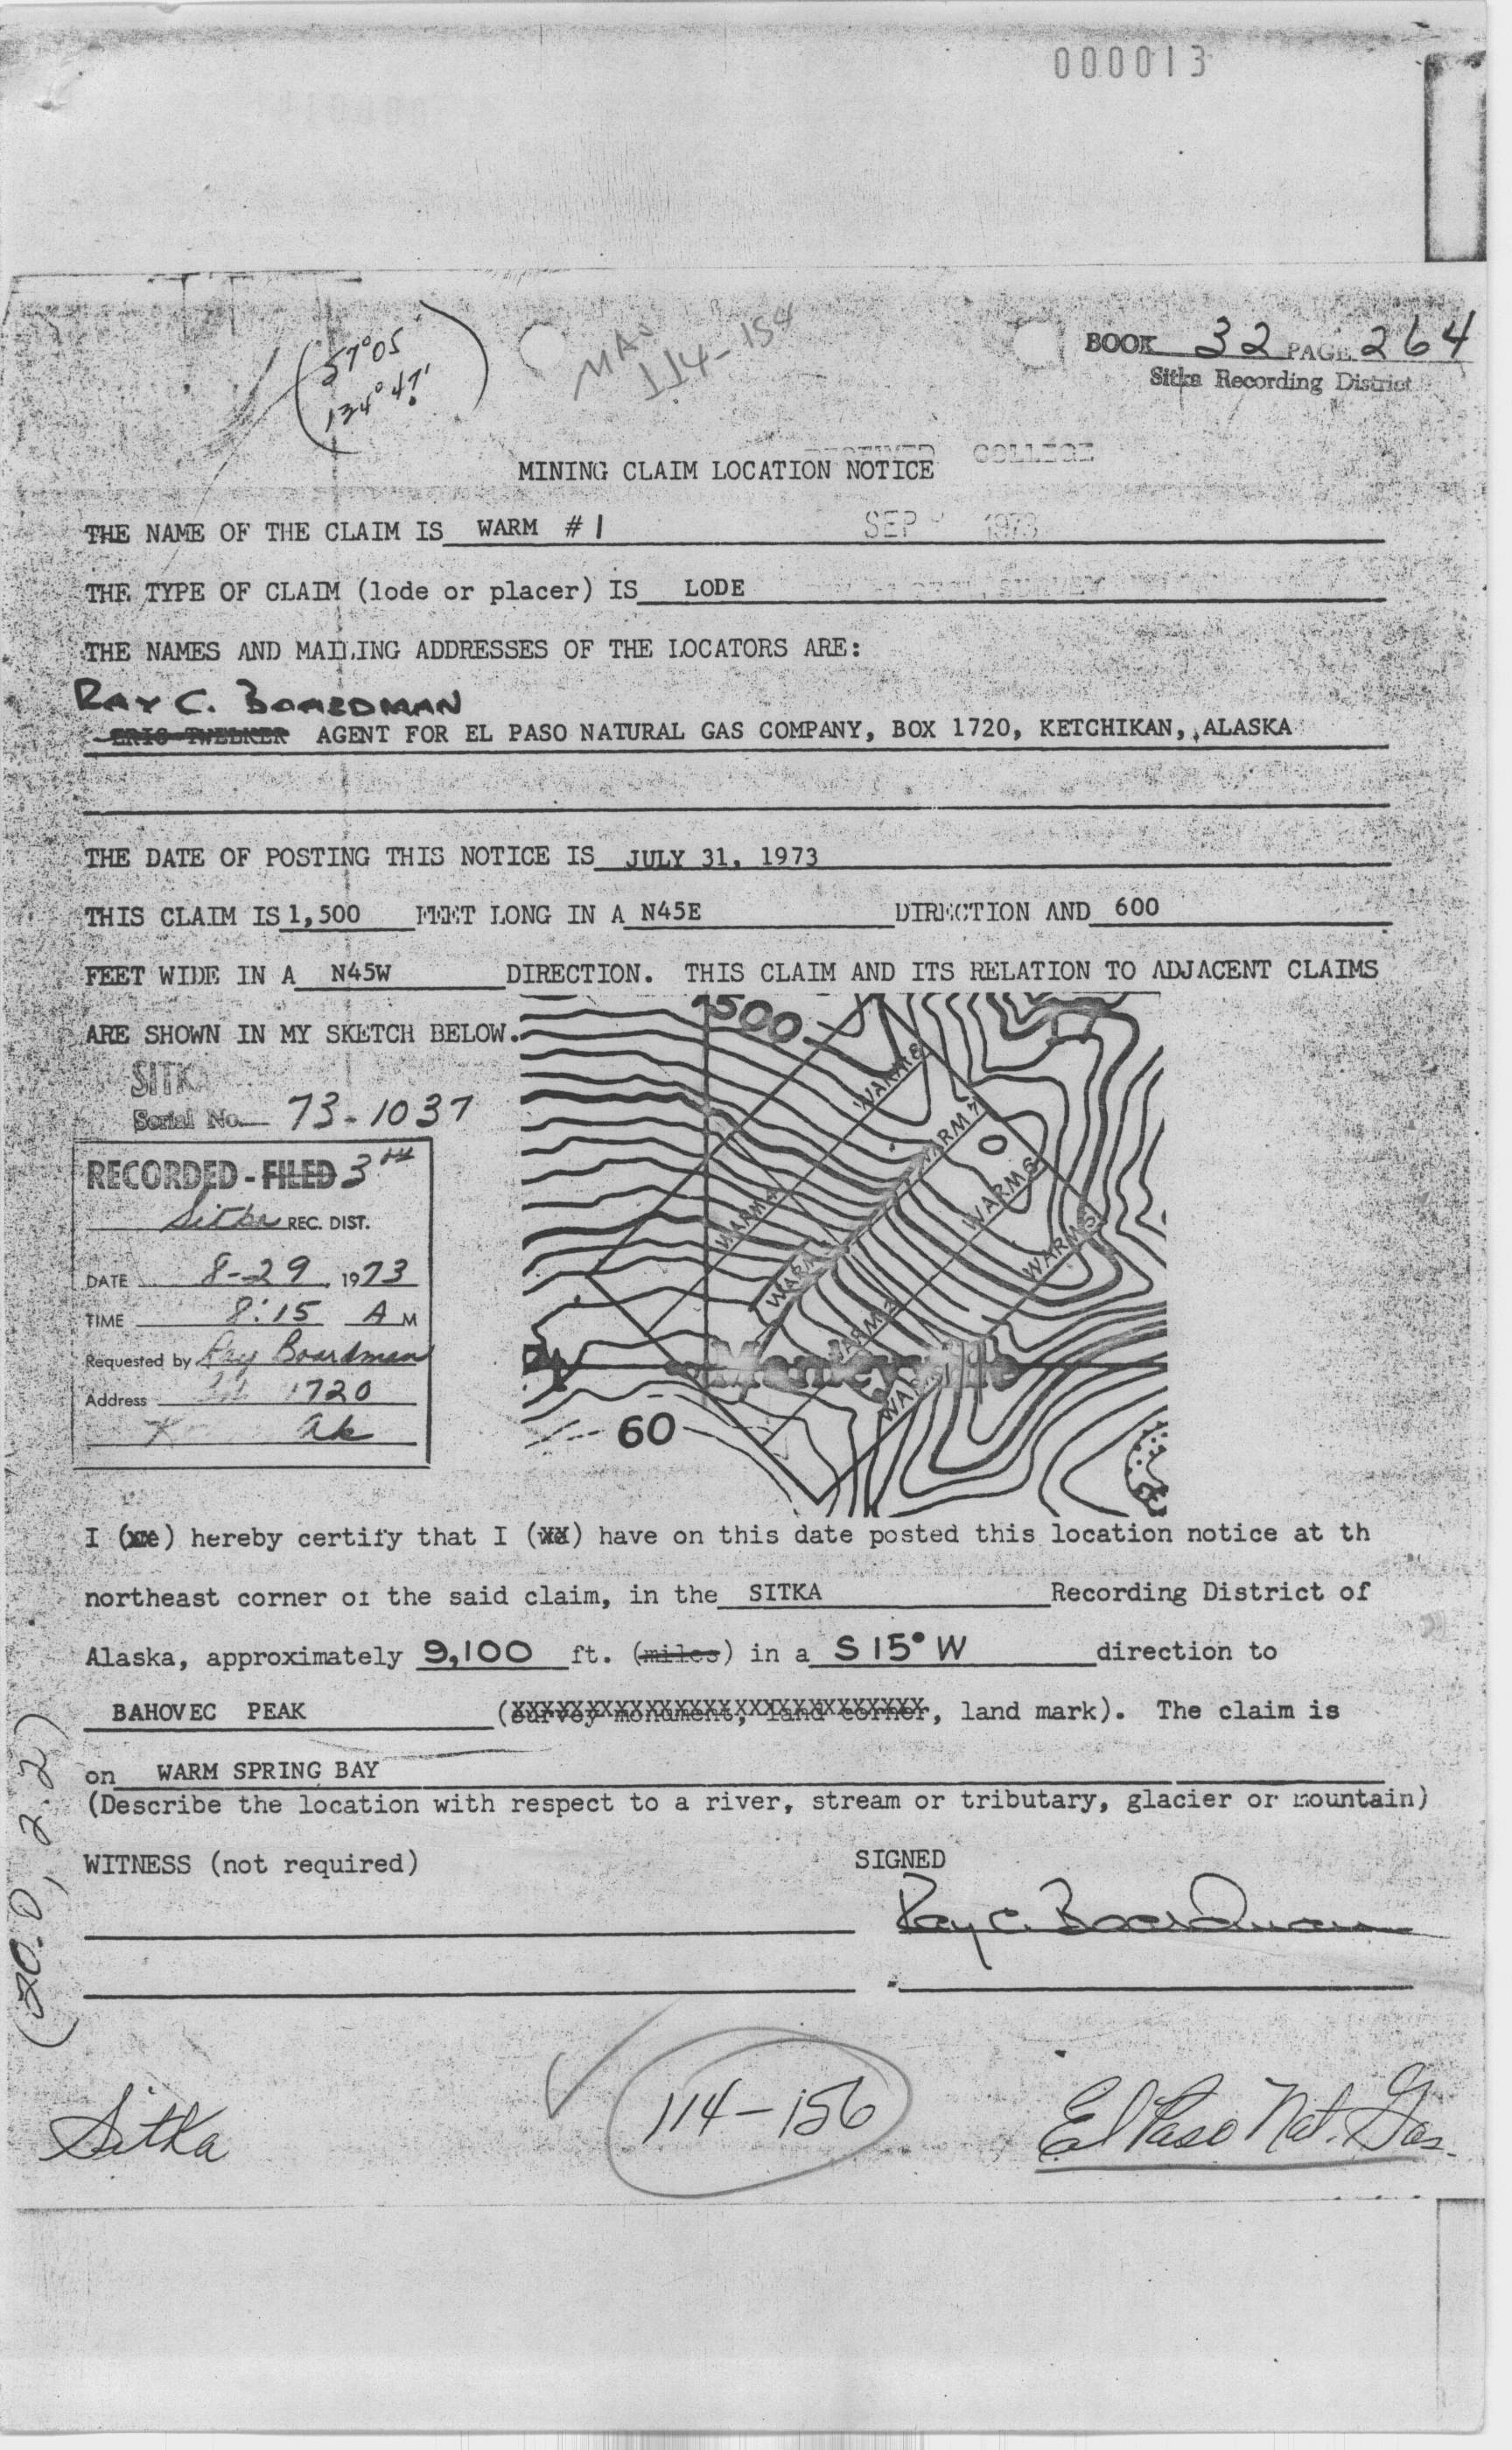 000013
57°05
134°47'
114-154
BOOK 32 PAGE 264
Sitka Recording District
COLLEGE
MINING CLAIM LOCATION NOTICE
THE NAME OF THE CLAIM IS WARM #1
SEP 1973
THE TYPE OF CLAIM (lode or placer) IS LODE
SURVEY
THE NAMES AND MAILING ADDRESSES OF THE LOCATORS ARE:
RAY C. BOARDMAN
ERIC TWELKER AGENT FOR EL PASO NATURAL GAS COMPANY, BOX 1720, KETCHIKAN, ALASKA
THE DATE OF POSTING THIS NOTICE IS JULY 31, 1973
THIS CLAIM IS 1,500 FEET LONG IN A N45E DIRECTION AND 600
FEET WIDE IN A N45W DIRECTION. THIS CLAIM AND ITS RELATION TO ADJACENT CLAIMS
ARE SHOWN IN MY SKETCH BELOW.
1500
WARM 8
WARM 7
WARM 6
WARM 5
WARM 4
WARM
WARM 2
WARM
60
SITKA
Serial No. 73-1037
RECORDED - FILED
Sitka REC. DIST.
DATE 8-29 1973
TIME 8:15 A M
Requested by Ray Boardman
Address 1720
Ak
I (we) hereby certify that I (we) have on this date posted this location notice at th
northeast corner of the said claim, in the SITKA Recording District of
Alaska, approximately 9,100 ft. (miles) in a S 15° W direction to
BAHOVEC PEAK (survey monument, land corner, land mark). The claim is
on WARM SPRING BAY
(Describe the location with respect to a river, stream or tributary, glacier or mountain)
WITNESS (not required) SIGNED
Ray C. Boardman
(20.0, 2.2)
Sitka
114-156
El Paso Nat. Gas.